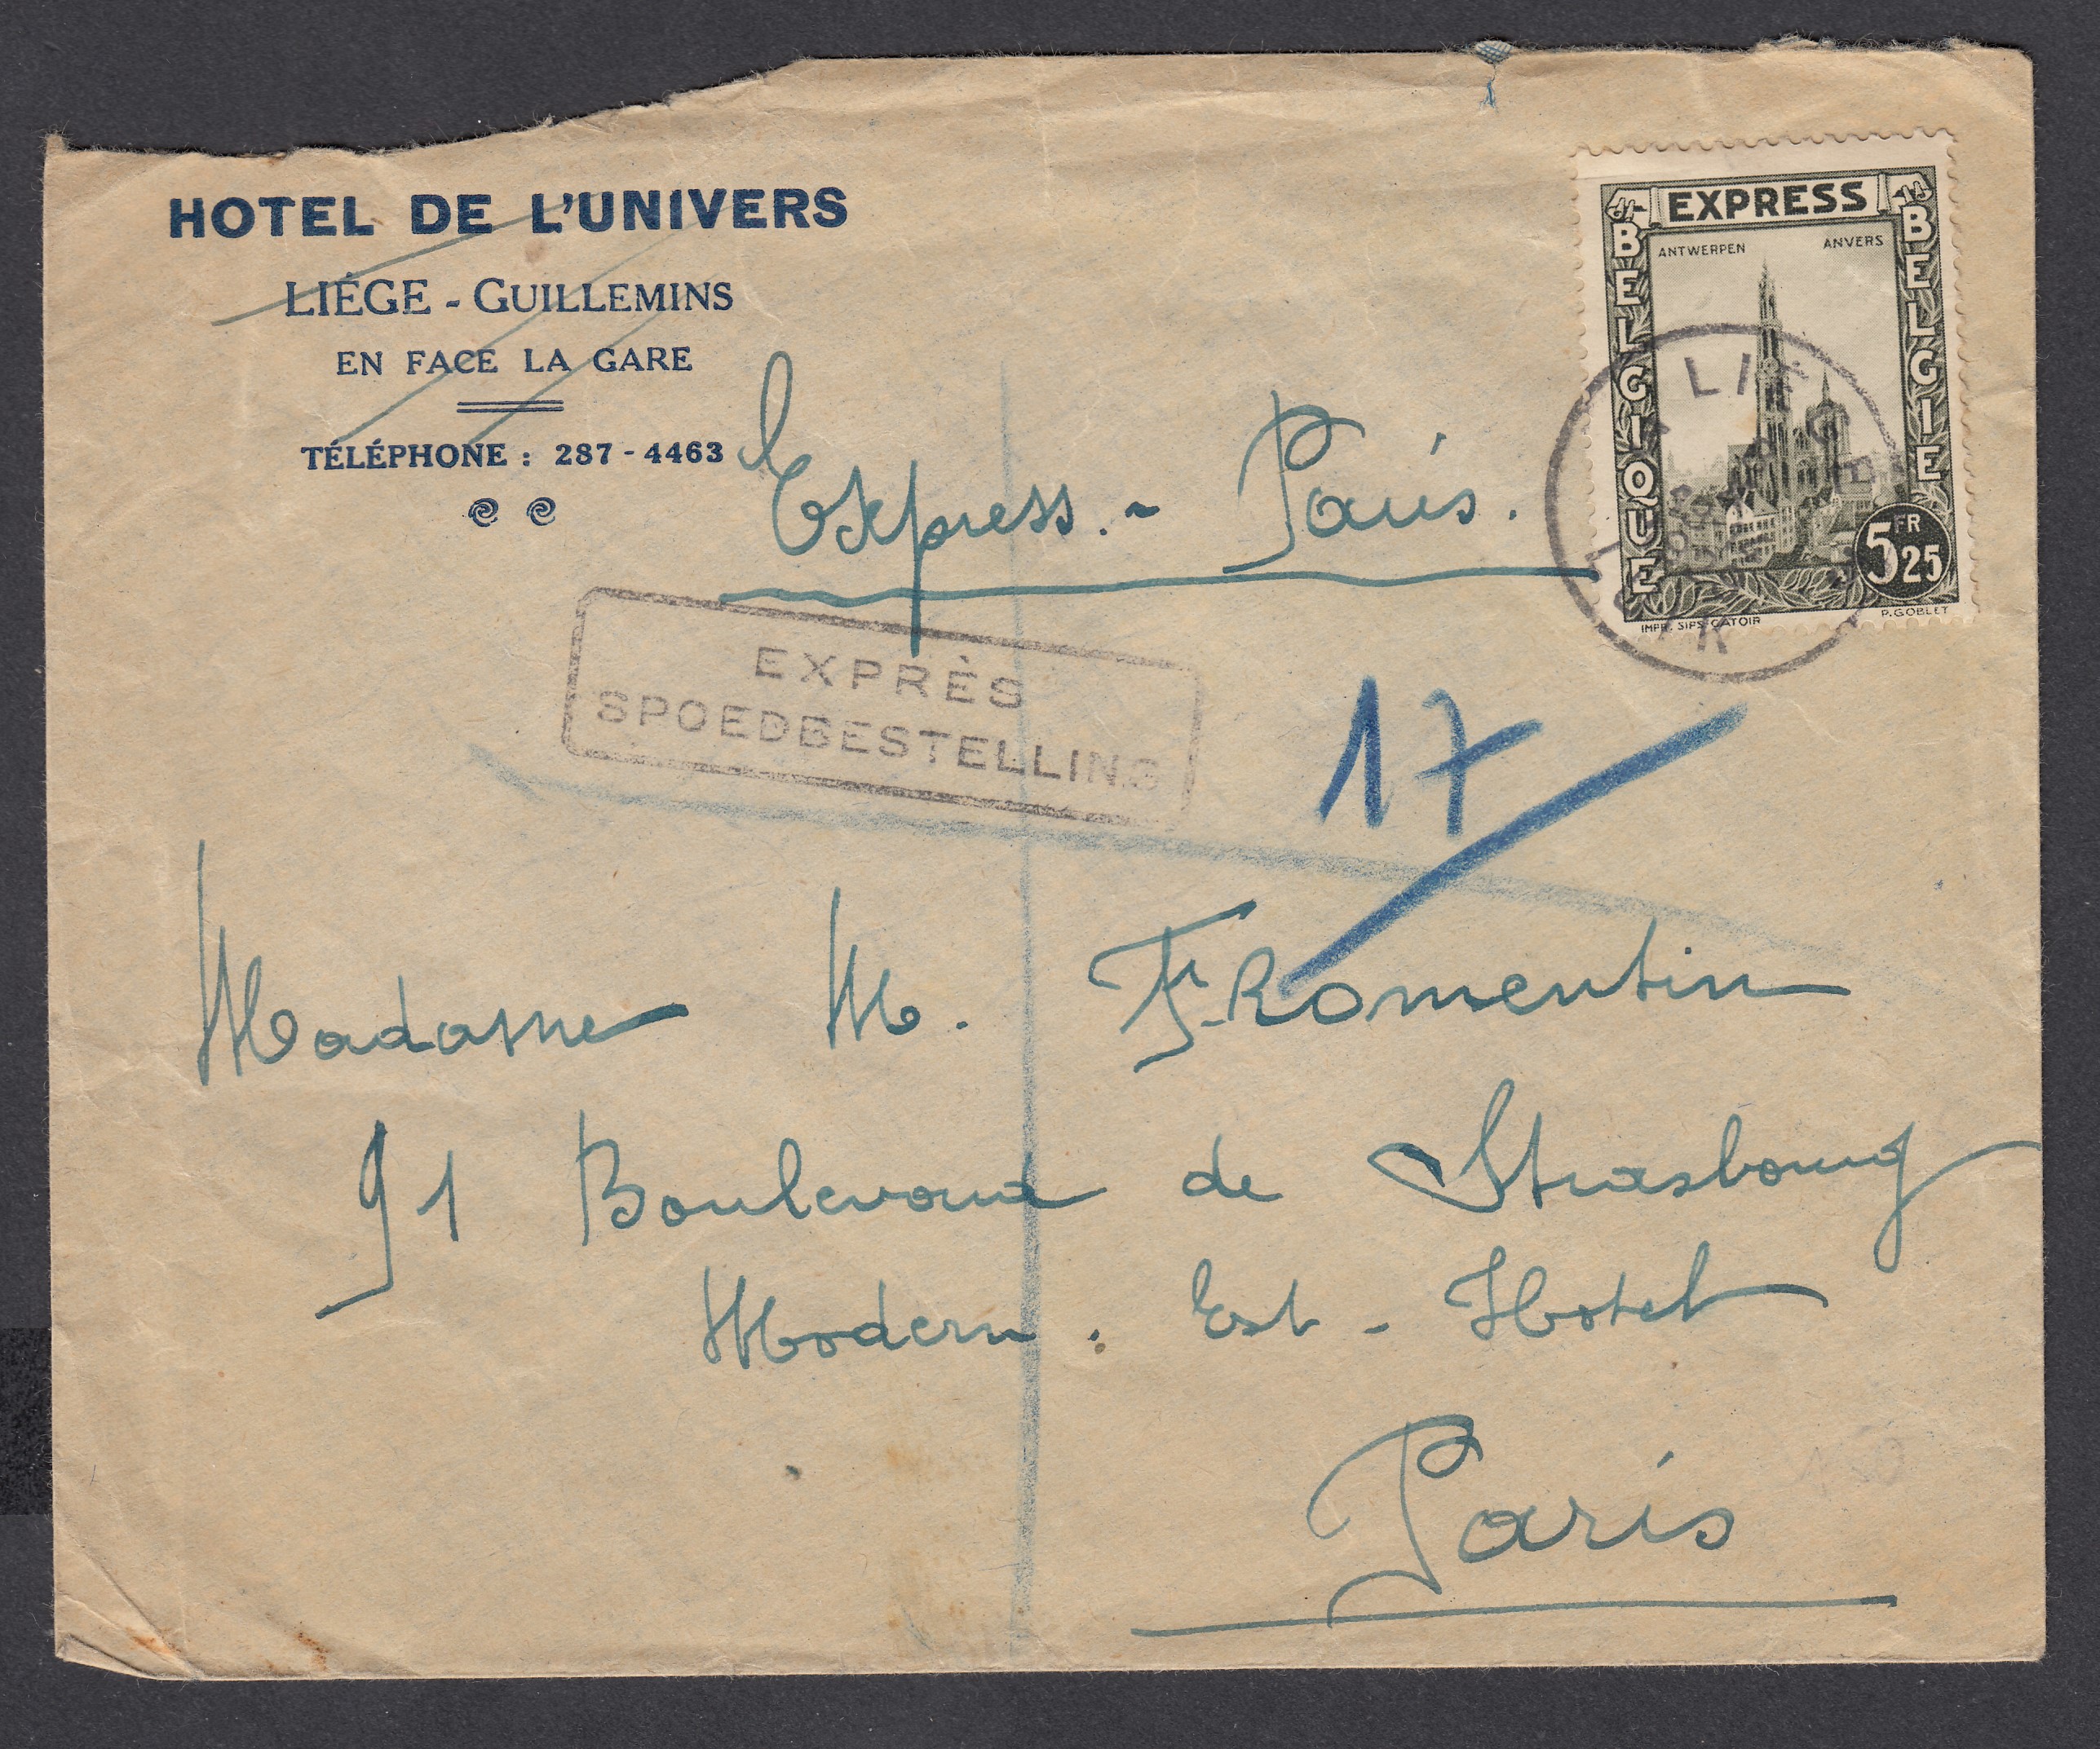 HOTEL DE L'UNIVERS
LIÉGE - GUILLEMINS
EN FACE LA GARE
TÉLÉPHONE : 287 - 4463
EXPRESS
BELGIQUE
BELGIE
ANTWERPEN ANVERS
5 FR 25
IMPR. SIPS. CATOIR P. GOBLET
Express. - Paris.
EXPRÈS
SPOEDBESTELLING
17
Madame M. Fromentin
91 Boulevard de Strasbourg
Modern. Est - Hotel
Paris